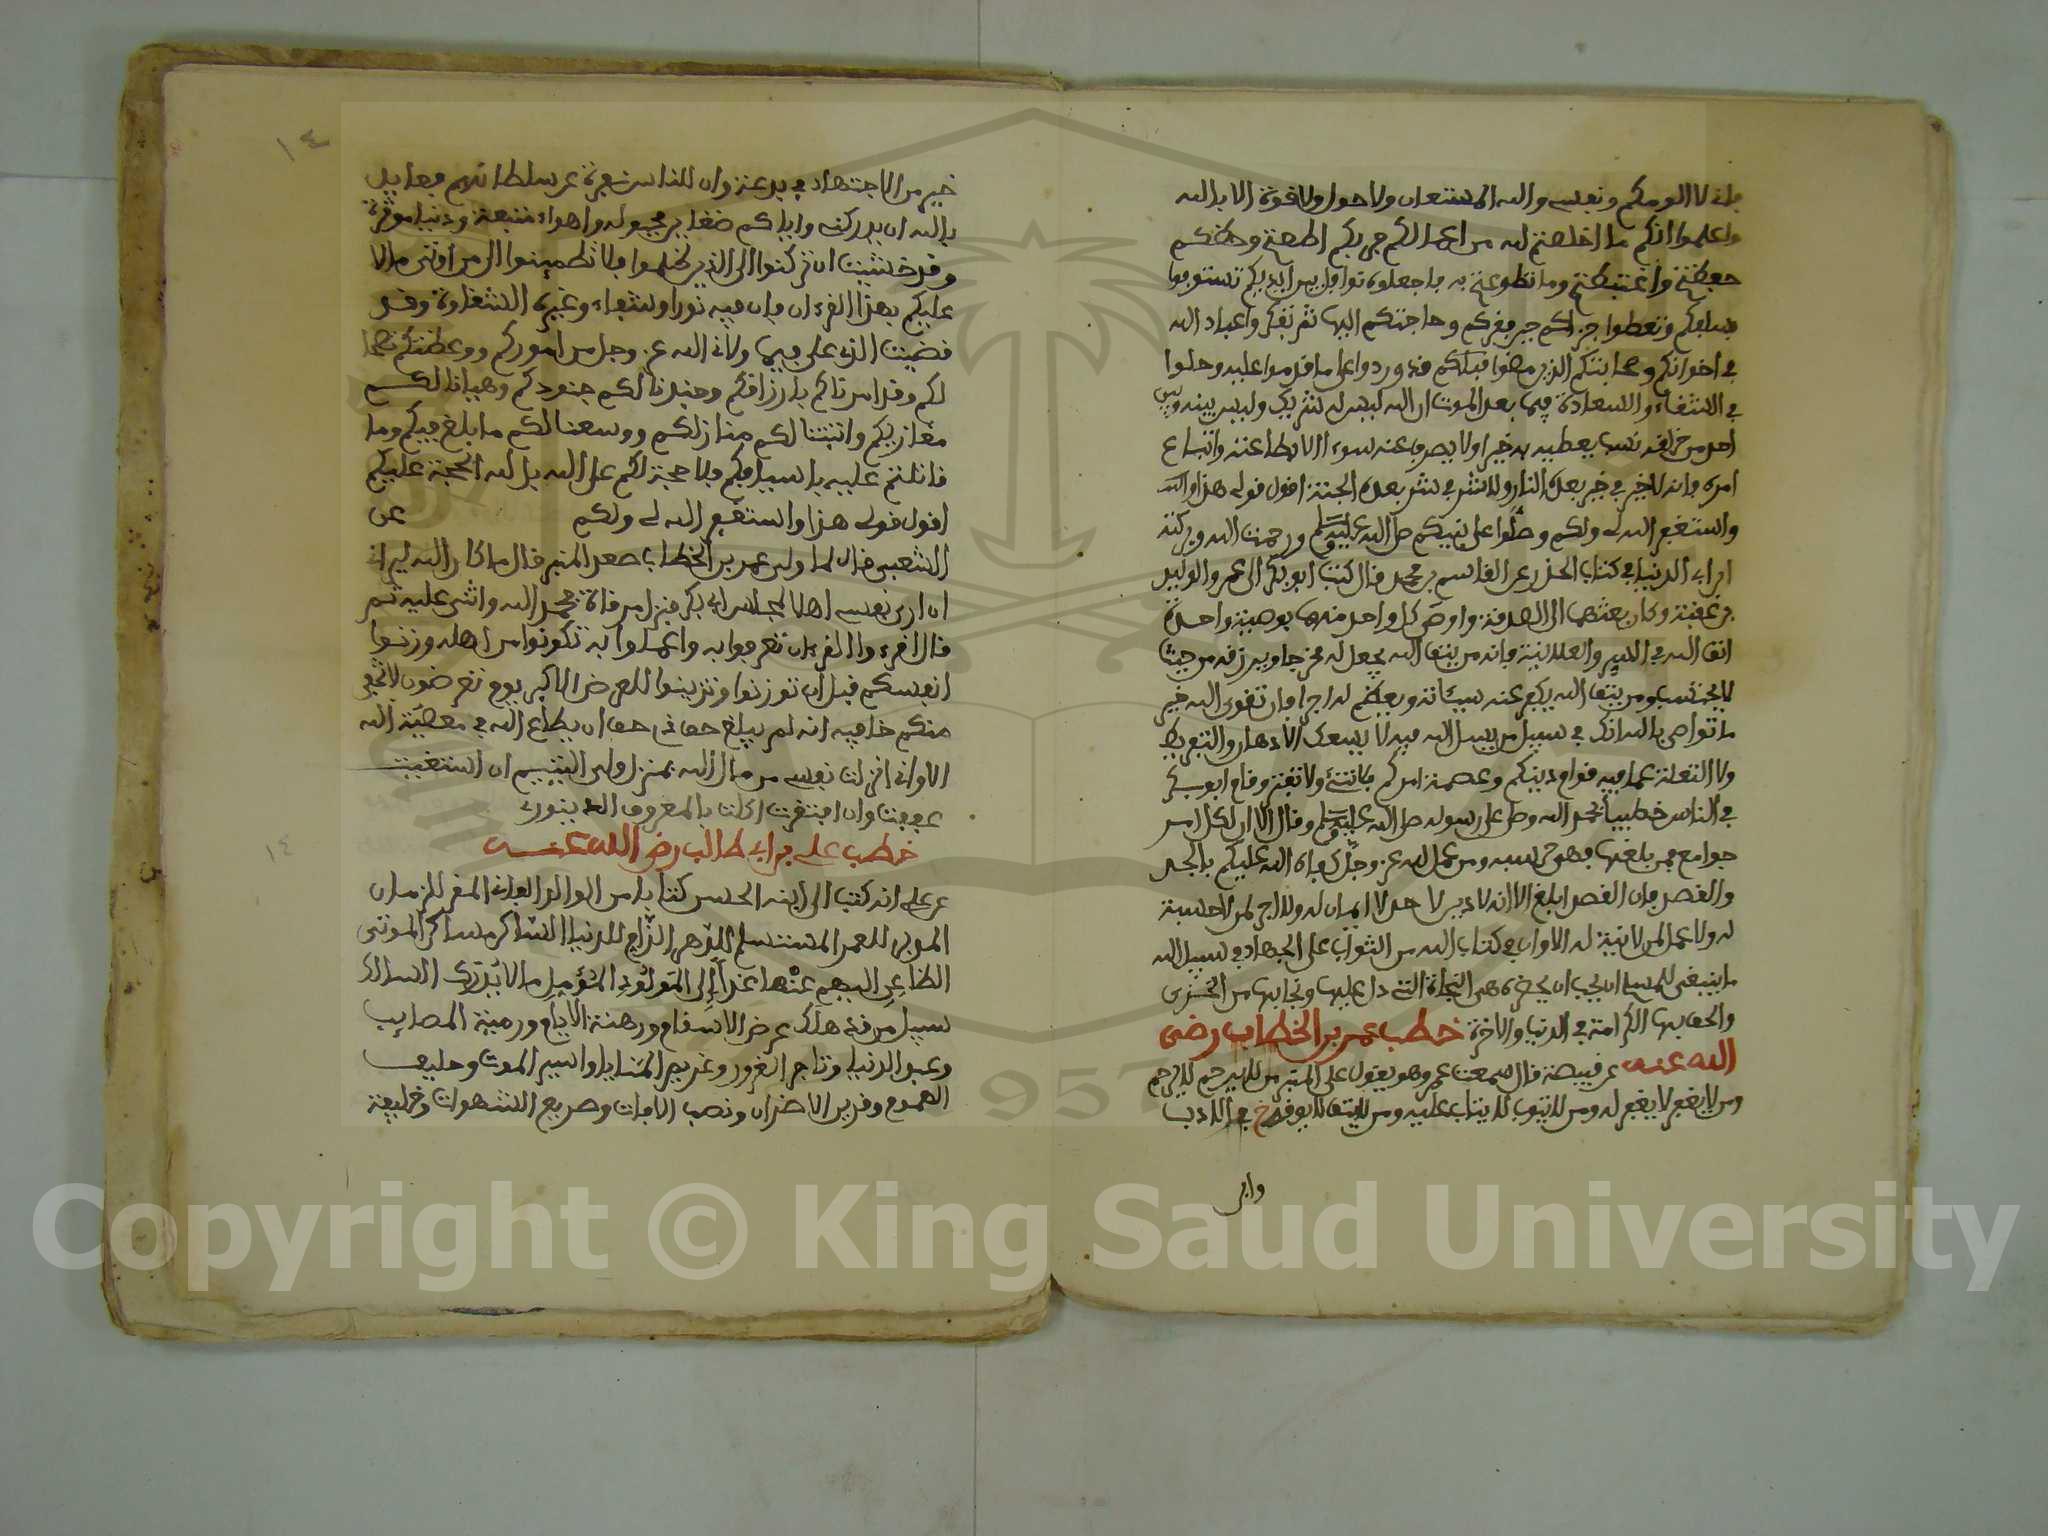 فاني لا الومكم ونفسي والله المستعان ولا حول ولا قوة الا بالله
واعلموا انكم ما اخلصتم لله من اعمالكم فربكم اطعتم وحظكم
حفظتم واغتبطتم وما تطوعتم به فاجعلوه نوافل بين ايديكم تستوفوا
سلفكم وتعطوا جزاكم حين فقركم وحاجتكم اليها ثم تفكروا عباد الله
في اخوانكم وصحابتكم الذين مضوا قبلكم قد وردوا على ما قدموا عليه وحلوا
في الشقاء والسعادة فيما بعد الموت ان الله ليس له شريك وليس بينه وبين
احد من خلقه نسب يعطيه به خيرا ولا يصرف عنه سوءا الا بطاعته واتباع
امره فانه لا خير في خير بعده النار ولا شر في شر بعده الجنة اقول قولي هذا والله
واستغفر الله لي ولكم وصلوا على نبيكم صلى الله عليه وسلم ورحمت الله وبركته
ابن ابي الدنيا في كتاب الحذر عن القاسم بن محمد قال كتب ابو بكر الى عمرو والوليد
بن عقبة وكان بعثهما الى الصدقة واوصى كل واحد منهما بوصية واحدة
اتق الله في السر والعلانية فانه من يتق الله يجعل له مخرجا ويرزقه من حيث
لا يحتسب ومن يتق الله يكفر عنه سيئاته ويعظم له اجرا فان تقوى الله خير
ما تواصى به انك في سبيل من سبل الله فيه لا يسعك الادهان والتفريط
ولا الغفلة عما فيه قوام دينكم وعصمة امركم فلا تني ولا تفتر وقام ابو بكر
في الناس خطيبا فحمد الله وصلى على رسوله صلى الله عليه وسلم وقال الا ان لكل امر
جوامع فمن بلغها فهو حسبه ومن عمل لله عز وجل كفاه الله عليكم بالجد
والقصد فان القصد ابلغ الا انه لا دين لاحد لا ايمان له ولا اجر لمن لا حسبة
له ولا عمل لمن لا نية له الا وان في كتاب الله من الثواب على الجهاد في سبيل الله
ما ينبغي للمسلم ان يحب ان يخص به هي النجاة التي دل عليها ونجا بها من الخزى
والحق بها الكرامة في الدنيا والاخرة خطب عمر بن الخطاب رضى
الله عنه عن قبيصة قال سمعت عمر وهو يقول على المنبر من لا يرحم لا يرحم
ومن لا يغفر لا يغفر له ومن لا يتوب لا يتاب عليه ومن لا يتق لا يوقه خ في الادب
وابن
١٤
خير من الاجتهاد في بدعة وان للناس نفرة عن سلطانهم فعايذ
بالله ان يدركني واياكم ضغاين مجبولة واهواء متبعة ودنيا موثرة
وقد خشيت ان تركنوا الى الذين ظلموا فلا تطمئنوا الى من اوتي مالا
عليكم بهذا القرءان فان فيه نورا وشفاء وغيره الشقاوة وقد
قضيت الذي علي فيما ولاني الله عز وجل من اموركم ووعظتكم نصحا
لكم وقد امرنا لكم بارزاقكم وجندنا لكم جنودكم وهيانا لكم
مغازيكم واثبتنا لكم منازلكم ووسعنا لكم ما بلغ فيكم وما
قاتلتم عليه باسيافكم فلا حجة لكم على الله بل لله الحجة عليكم
اقول قولي هذا واستغفر الله لي ولكم عن
الشعبي قال لما ولي عمر بن الخطاب صعد المنبر فقال ما كان الله ليراني
ان ارى نفسي اهلا لمجلس ابي بكر فنزل مرقاة فحمد الله واثنى عليه ثم
قال اقرءوا القرءان تعرفوا به واعملوا به تكونوا من اهله وزنوا
انفسكم قبل ان توزنوا وتزينوا للعرض الاكبر يوم تعرضون لا تخفى
منكم خافية انه لم يبلغ حق ذي حق ان يطاع الله في معصية الله
الا واني انزلت نفسي من مال الله بمنزلة ولي اليتيم ان استغنيت
عففت وان افتقرت اكلت بالمعروف الدينوري
خطب علي بن ابي طالب رضي الله عنه
عن علي انه كتب الى ابنه الحسن كتابا من الوالد الفاني المقر للزمان
المدبر للعمر المستسلم للدهر الذام للدنيا الساكن مساكن الموتى
الظاعن اليهم عنها غدا إلى المولود المؤمل ما لا يدرك السالك
سبيل من قد هلك عرض الاسقام ورهنة الايام ورمية المصايب
وعبد الدنيا وتاجر الغرور وغريم المنايا واسير الموت وحليف
الهموم وقرين الاحزان ونصب الافات وصريع الشهوات وخليفة
١٤
Copyright © King Saud University
957